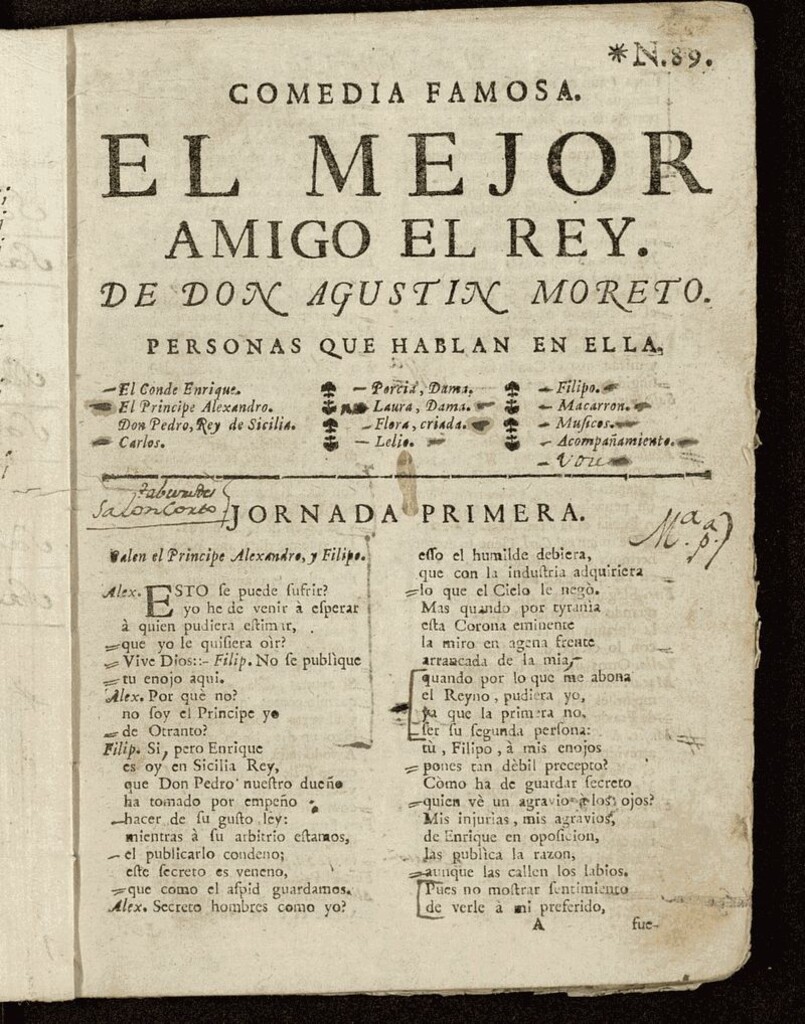 *N.89.
COMEDIA FAMOSA.
EL MEJOR
AMIGO EL REY.
DE DON AGUSTIN MORETO.
PERSONAS QUE HABLAN EN ELLA.
El Conde Enrique.
El Principe Alexandro.
Don Pedro, Rey de Sicilia.
Carlos.
Porcia, Dama.
Laura, Dama.
Flora, criada.
Lelio.
Filipo.
Macarron.
Musicos.
Acompañamiento.
Salon Corto
JORNADA PRIMERA.
Salen el Principe Alexandro, y Filipo.
Alex. ESTO se puede sufrir?
yo he de venir à esperar
à quien pudiera estimar,
que yo le quisiera oìr?
Vive Dios::- Filip. No se publique
tu enojo aqui.
Alex. Por què no?
no soy el Principe yo
de Otranto?
Filip. Si, pero Enrique
es oy en Sicilia Rey,
que Don Pedro nuestro dueño
ha tomado por empeño
hacer de su gusto ley:
mientras à su arbitrio estamos,
el publicarlo condeno;
este secreto es veneno,
que como el aspid guardamos.
Alex. Secreto hombres como yo?
esso el humilde debiera,
que con la industria adquiriera
lo que el Cielo le negò.
Mas quando por tyrania
esta Corona eminente
la miro en agena frente
arrancada de la mia,
quando por lo que me abona
el Reyno, pudiera yo,
ya que la primera no,
ser su segunda persona:
tù, Filipo, à mis enojos
pones tan dèbil precepto?
Còmo ha de guardar secreto
quien vè un agravio à los ojos?
Mis injurias, mis agravios,
de Enrique en oposicion,
las publica la razon,
aunque las callen los labios.
Pues no mostrar sentimiento
de verle à mi preferido,
A fue-